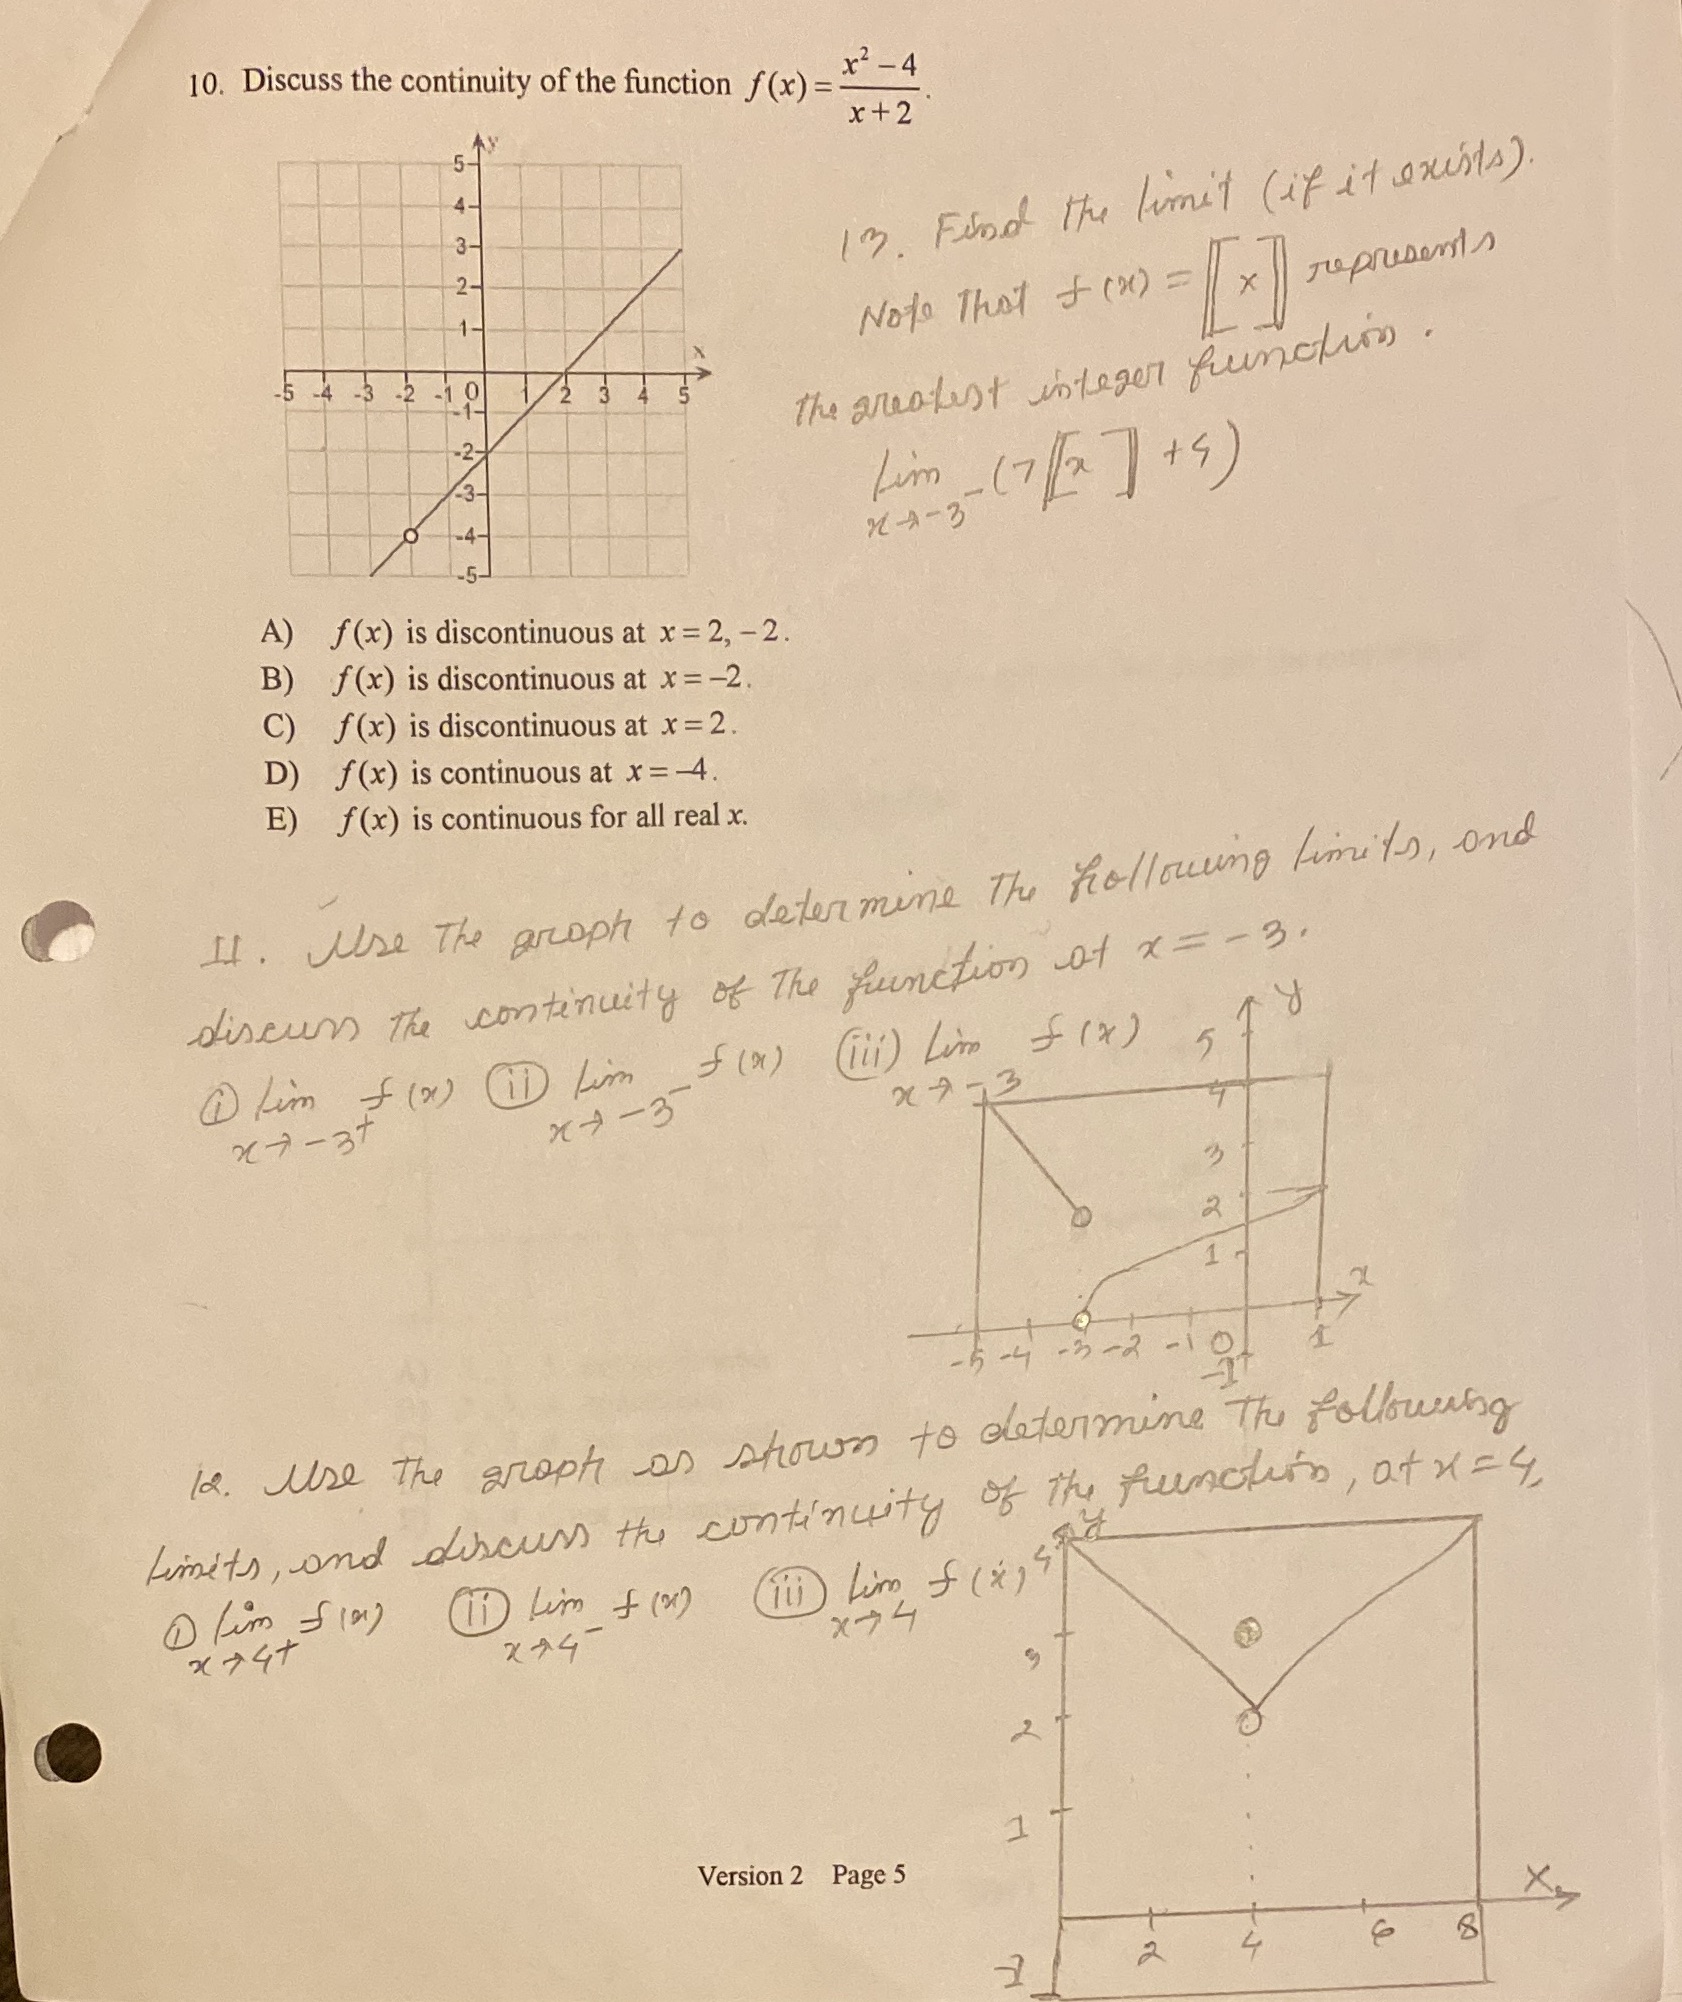 10. Discuss the continuity of the function f(x) = (x² − 4)/(x + 2).
y
5
4
3
2
1
x
-5 -4 -3 -2 -1 0 1 2 3 4 5
-1
-2
-3
-4
-5
13. Find the limit (if it exists).
Note that f(x) = [[x]] represents
the greatest integer function.
lim (7[[x]] +4)
x→-3⁻
A) f(x) is discontinuous at x = 2, −2.
B) f(x) is discontinuous at x = −2.
C) f(x) is discontinuous at x = 2.
D) f(x) is continuous at x = −4.
E) f(x) is continuous for all real x.
11. Use the graph to determine the following limits, and
discuss the continuity of the function at x = -3.
(i) lim f(x) (ii) lim f(x) (iii) lim f(x)
x→-3⁺ x→-3⁻ x→-3
y
5
4
3
2
1
x
-5 -4 -3 -2 -1 0 1
-1
12. Use the graph as shown to determine the following
limits, and discuss the continuity of the function, at x = 4.
(i) lim f(x) (ii) lim f(x) (iii) lim f(x)
x→4⁺ x→4⁻ x→4
y
4
3
2
1
X
2 4 6 8
-1
Version 2 Page 5